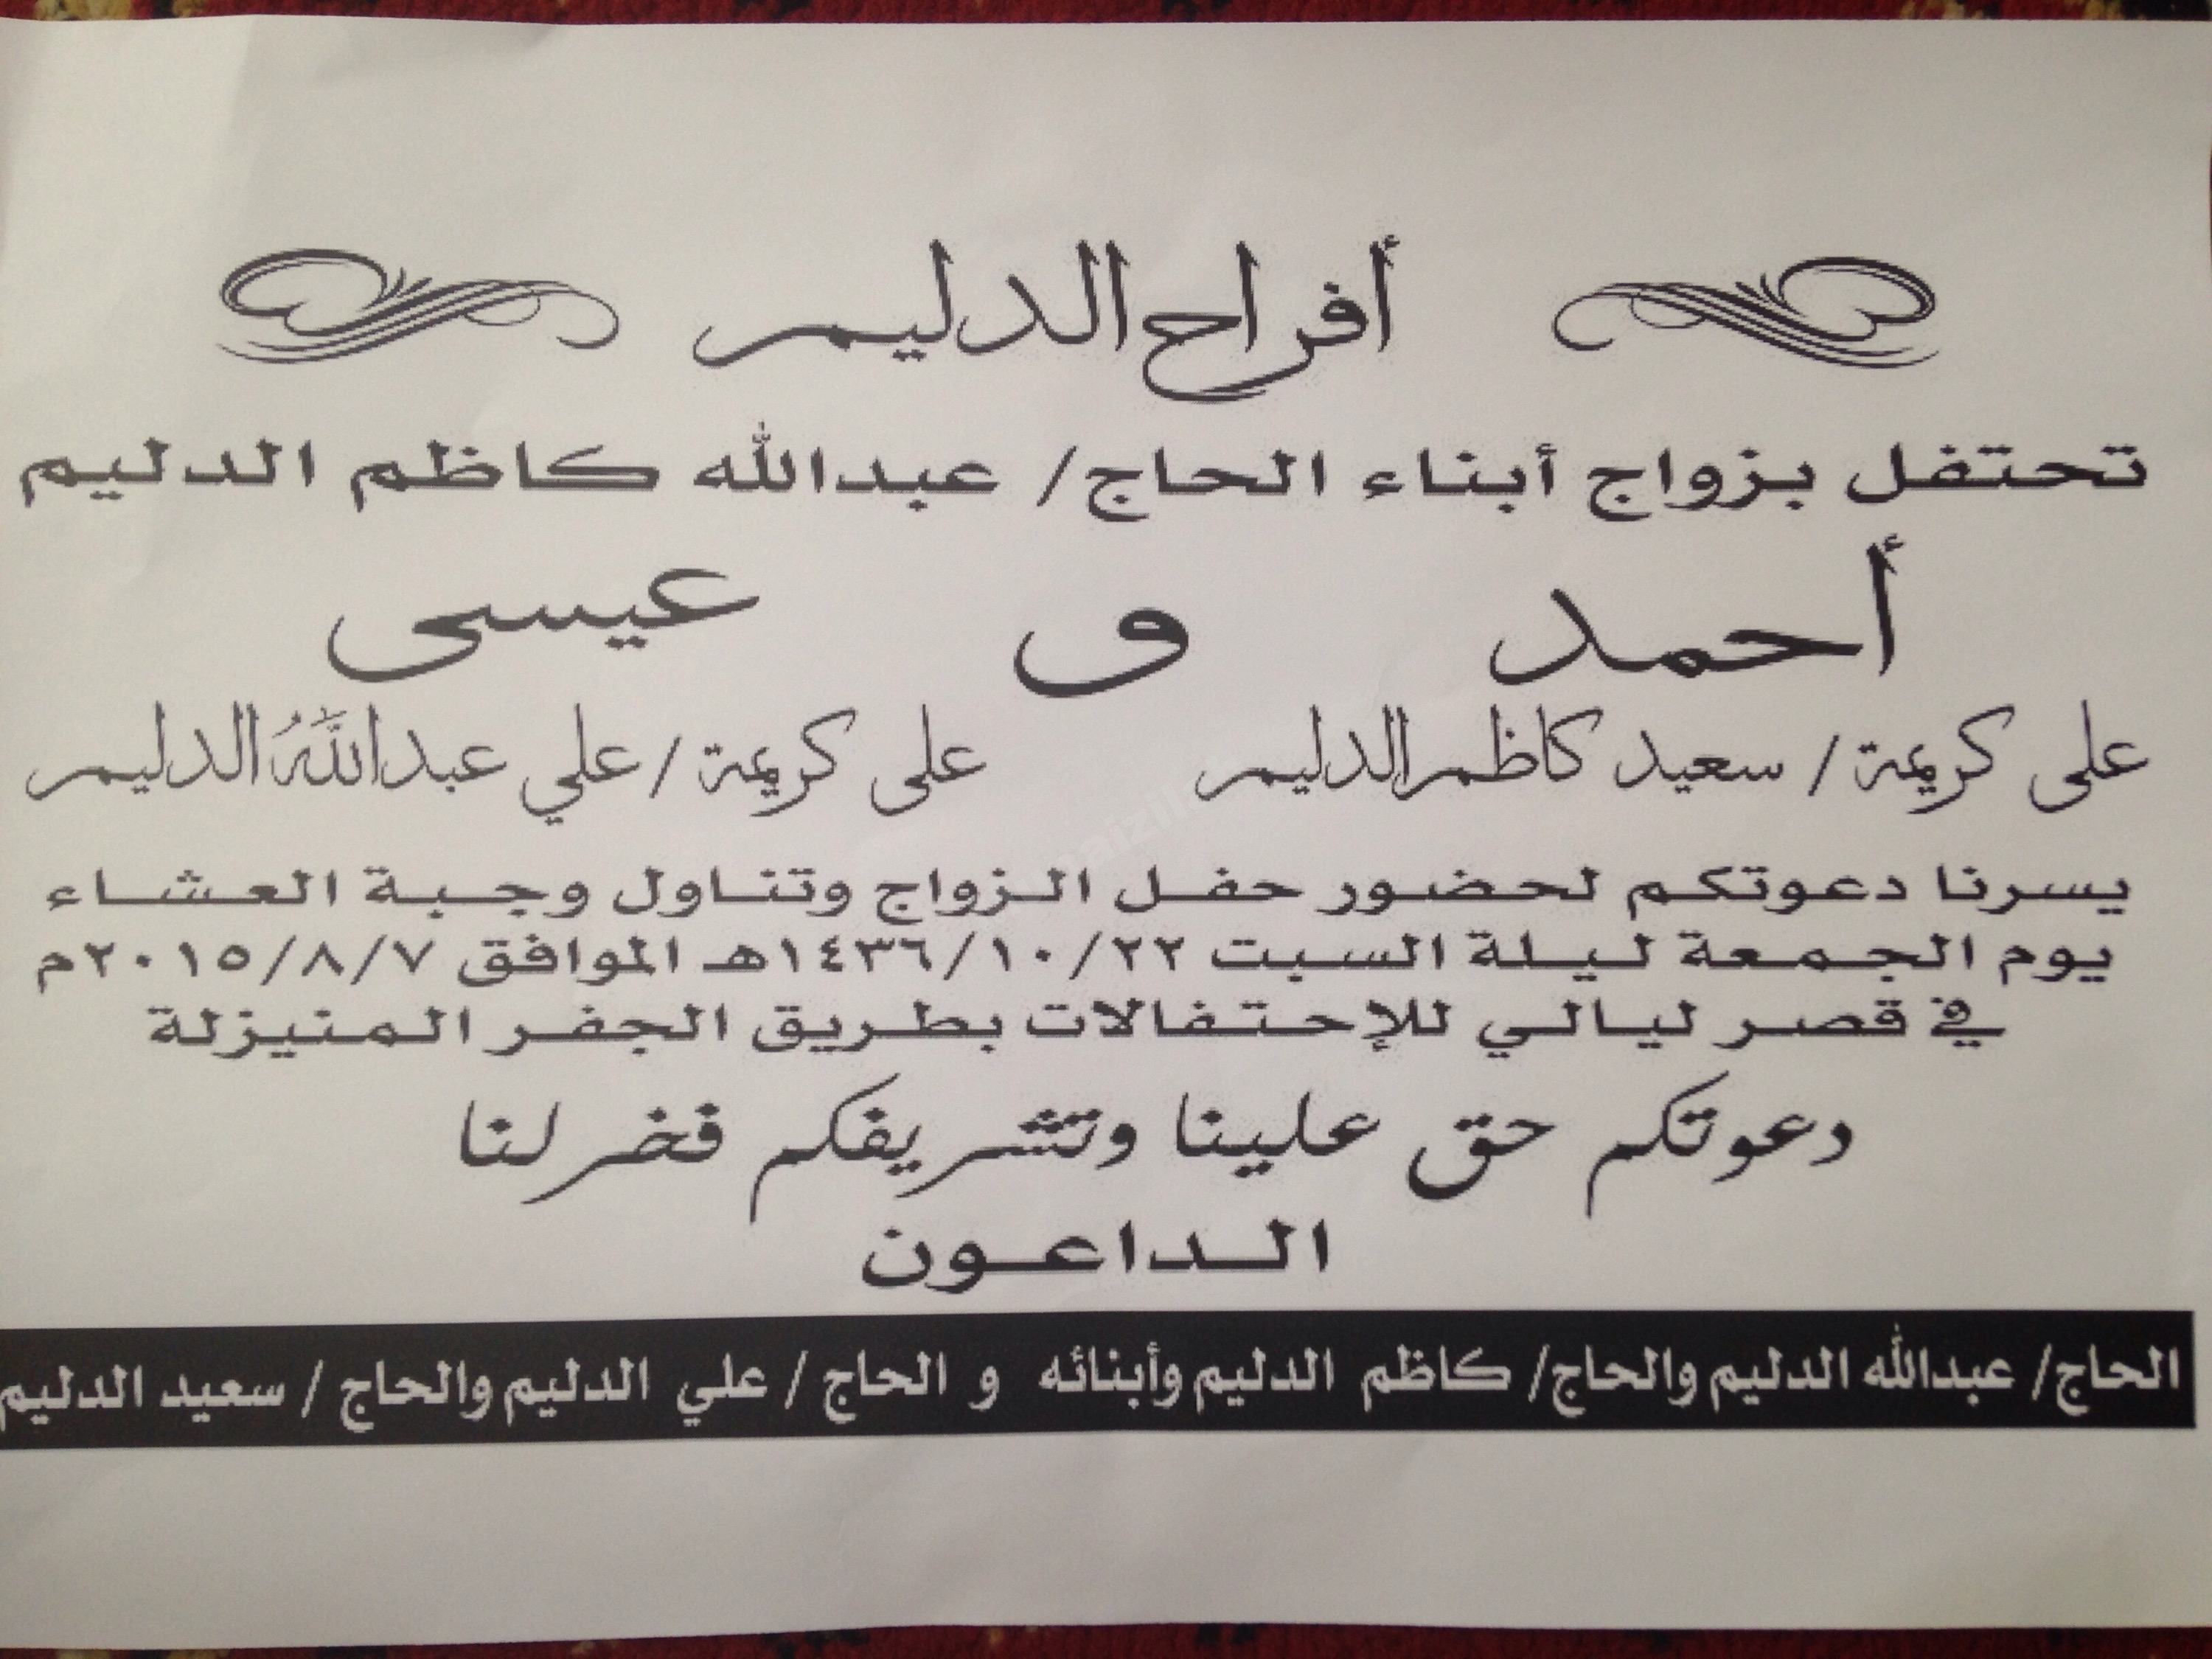 أفراح الدليم
تحتفل بزواج أبناء الحاج/ عبدالله كاظم الدليم
أحمد و عيسى
على كريمة / سعيد كاظم الدليم على كريمة / علي عبدالله الدليم
يسرنا دعوتكم لحضور حفل الزواج وتناول وجبة العشاء
يوم الجمعة ليلة السبت ١٤٣٦/١٠/٢٢هـ الموافق ٢٠١٥/٨/٧م
في قصر ليالي للإحتفالات بطريق الجفر المنيزلة
دعوتكم حق علينا وتشريفكم فخر لنا
الداعون
الحاج/ عبدالله الدليم والحاج/ كاظم الدليم وأبنائه و الحاج / علي الدليم والحاج / سعيد الدليم